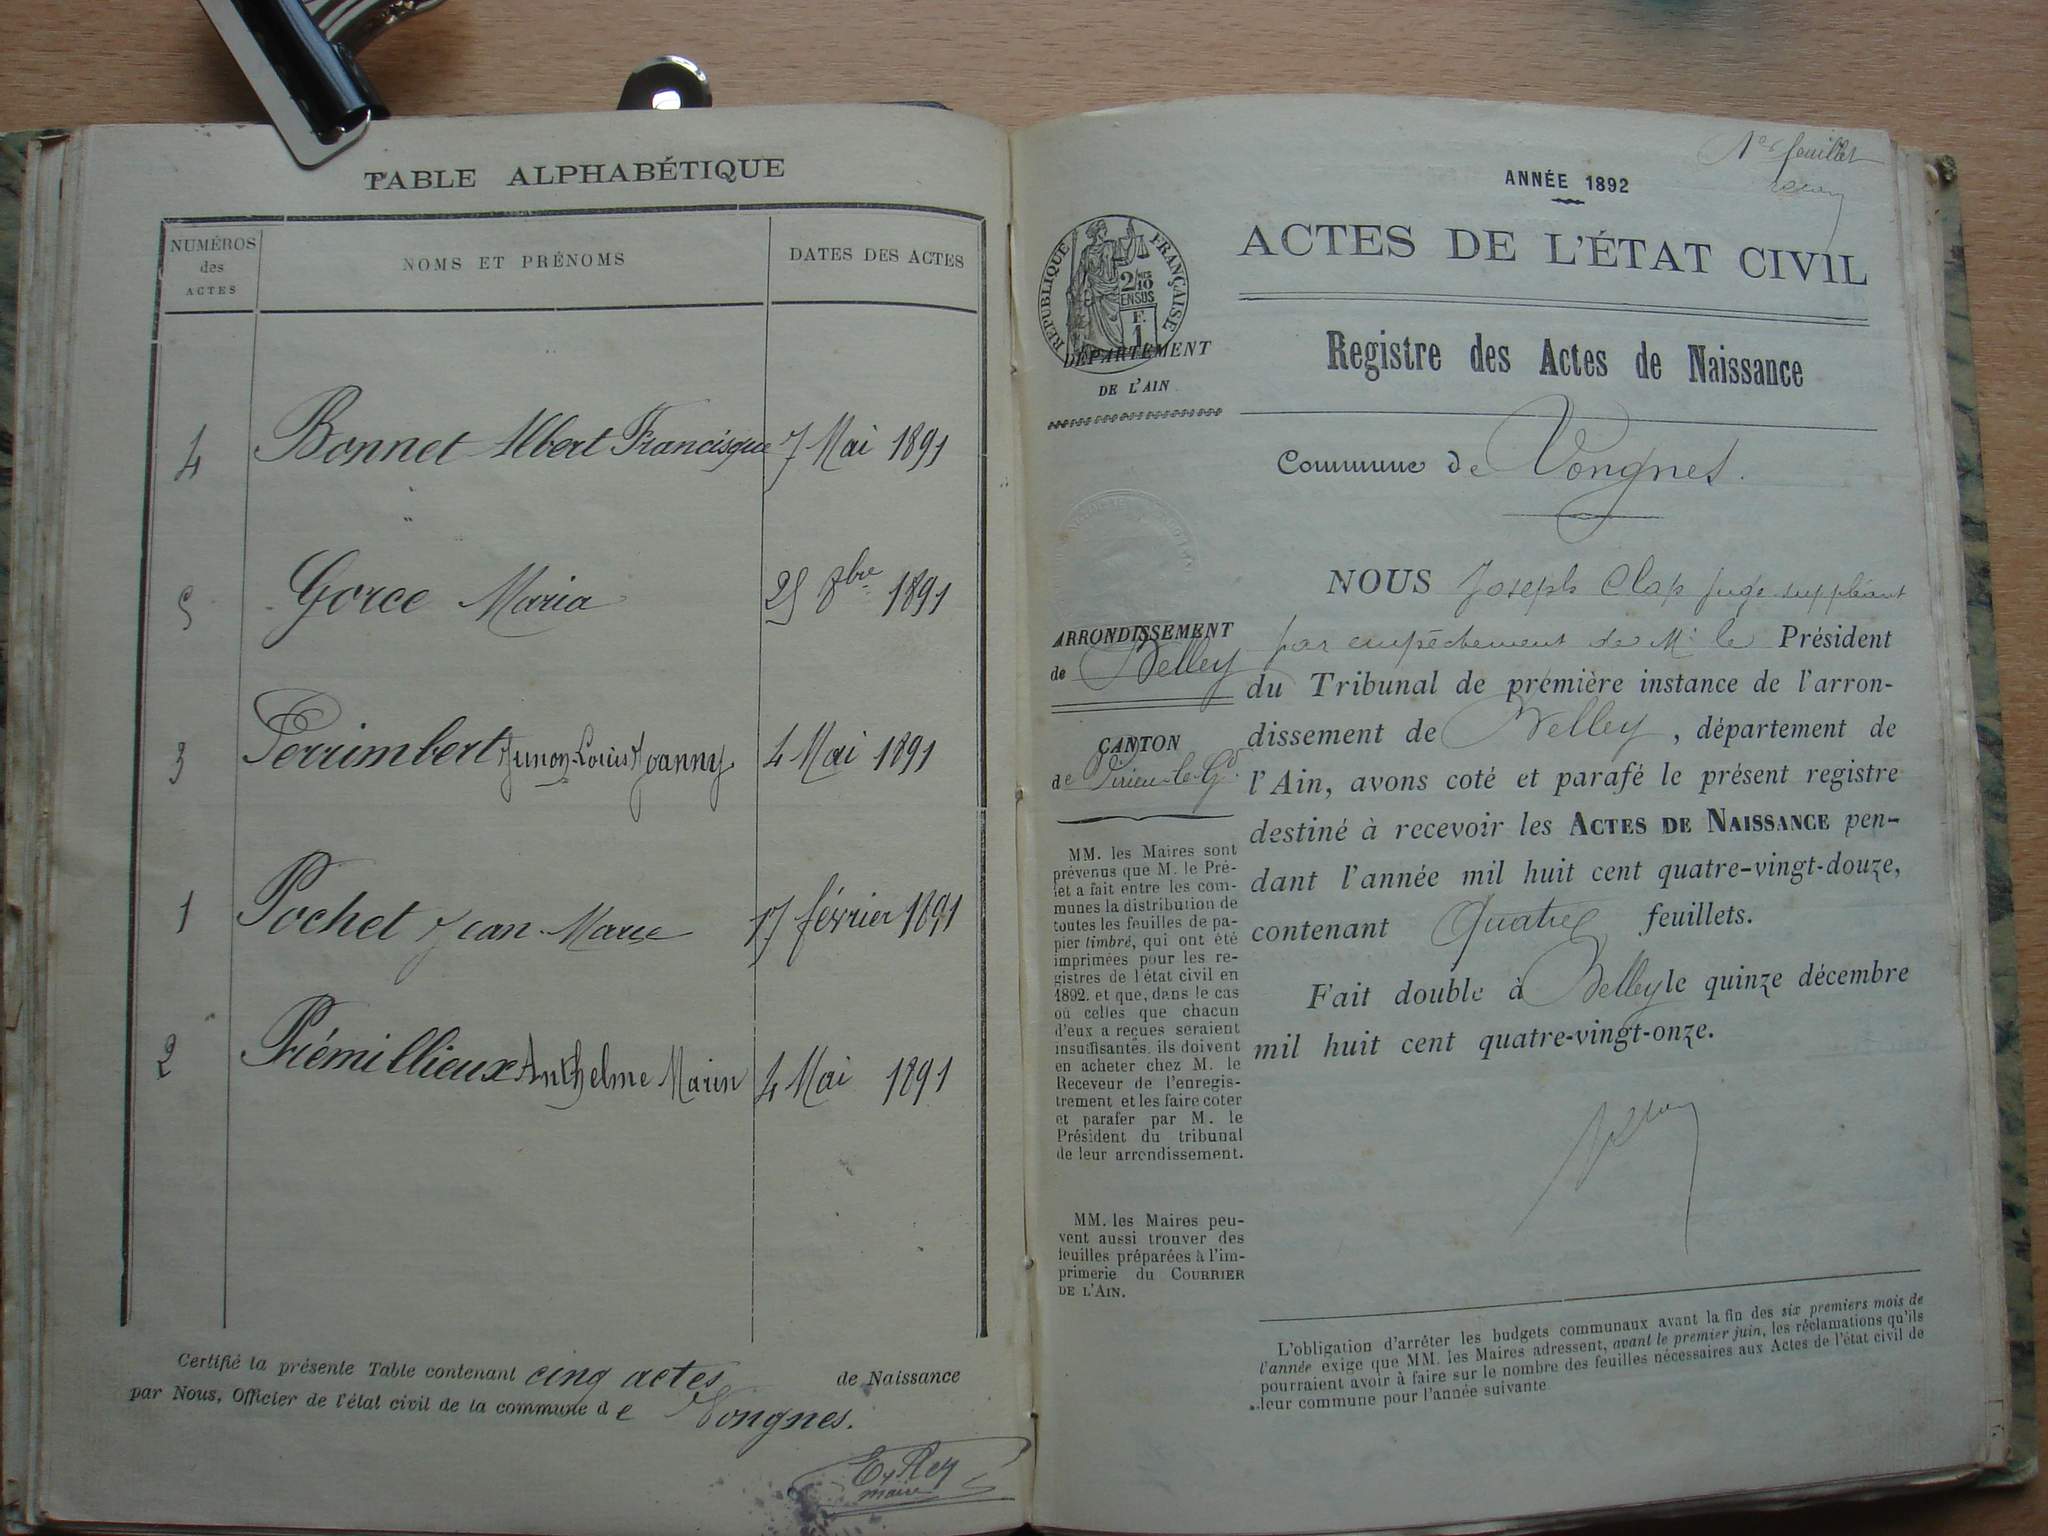 TABLE ALPHABÉTIQUE
NUMÉROS des ACTES
NOMS ET PRÉNOMS
DATES DES ACTES
4 Bonnet Albert Francisque 7 Mai 1891
5 Gorce Maria 25 8bre 1891
3 Perrimbert Junon Louis Joanny 4 Mai 1891
1 Pochet Jean Marie 17 février 1891
2 Prémillieux Anthelme Marin 4 Mai 1891
Certifié la présente Table contenant cinq actes de Naissance
par Nous, Officier de l'état civil de la commune de Vongnes.
Ey Rey
maire
1er feuillet
ANNÉE 1892
ACTES DE L'ÉTAT CIVIL
RÉPUBLIQUE FRANÇAISE
2/10
EN SUS
F.
1
DÉPARTEMENT
DE L'AIN
Registre des Actes de Naissance
Commune de Vongnes.
NOUS Joseph Clap juge suppléant
par empêchement de Mr le Président
du Tribunal de prémière instance de l'arron-
dissement de Belley, département de
l'Ain, avons coté et parafé le présent registre
destiné à recevoir les ACTES DE NAISSANCE pen-
dant l'année mil huit cent quatre-vingt-douze,
contenant Quatre feuillets.
Fait double à Belley le quinze décembre
mil huit cent quatre-vingt-onze.
ARRONDISSEMENT
de Belley
CANTON
de Virieu-le-Gd
MM. les Maires sont
prévenus que M. le Pré-
fet a fait entre les com-
munes la distribution de
toutes les feuilles de pa-
pier timbré, qui ont été
imprimées pour les re-
gistres de l'état civil en
1892. et que, dans le cas
où celles que chacun
d'eux a reçues seraient
insuffisantes, ils doivent
en acheter chez M. le
Receveur de l'enregis-
trement et les faire coter
et parafer par M. le
Président du tribunal
de leur arrondissement.
MM. les Maires peu-
vent aussi trouver des
feuilles préparées à l'im-
primerie du COURRIER
DE L'AIN.
L'obligation d'arrêter les budgets communaux avant la fin des six premiers mois de
l'année exige que MM. les Maires adressent, avant le premier juin, les réclamations qu'ils
pourraient avoir à faire sur le nombre des feuilles nécessaires aux Actes de l'état civil de
leur commune pour l'année suivante